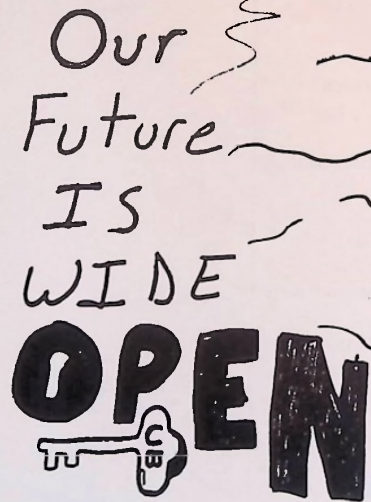 Our
Future
IS
WIDE
OPEN